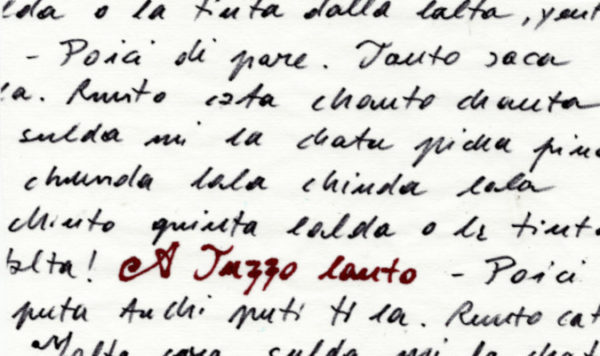 lda o la tinta dalla lalta, yent
- Poici di pare. Tanto saca
la. Runto esta chanto chanta
sulda mi la chatu picha pin
chunda lala chinda lala
chinto quinta lalda o la tinta
balta! A Tuzzo lanto - Poici
puta Anchi puti ti la. Runto cat
Malta cara sulda mi la chat